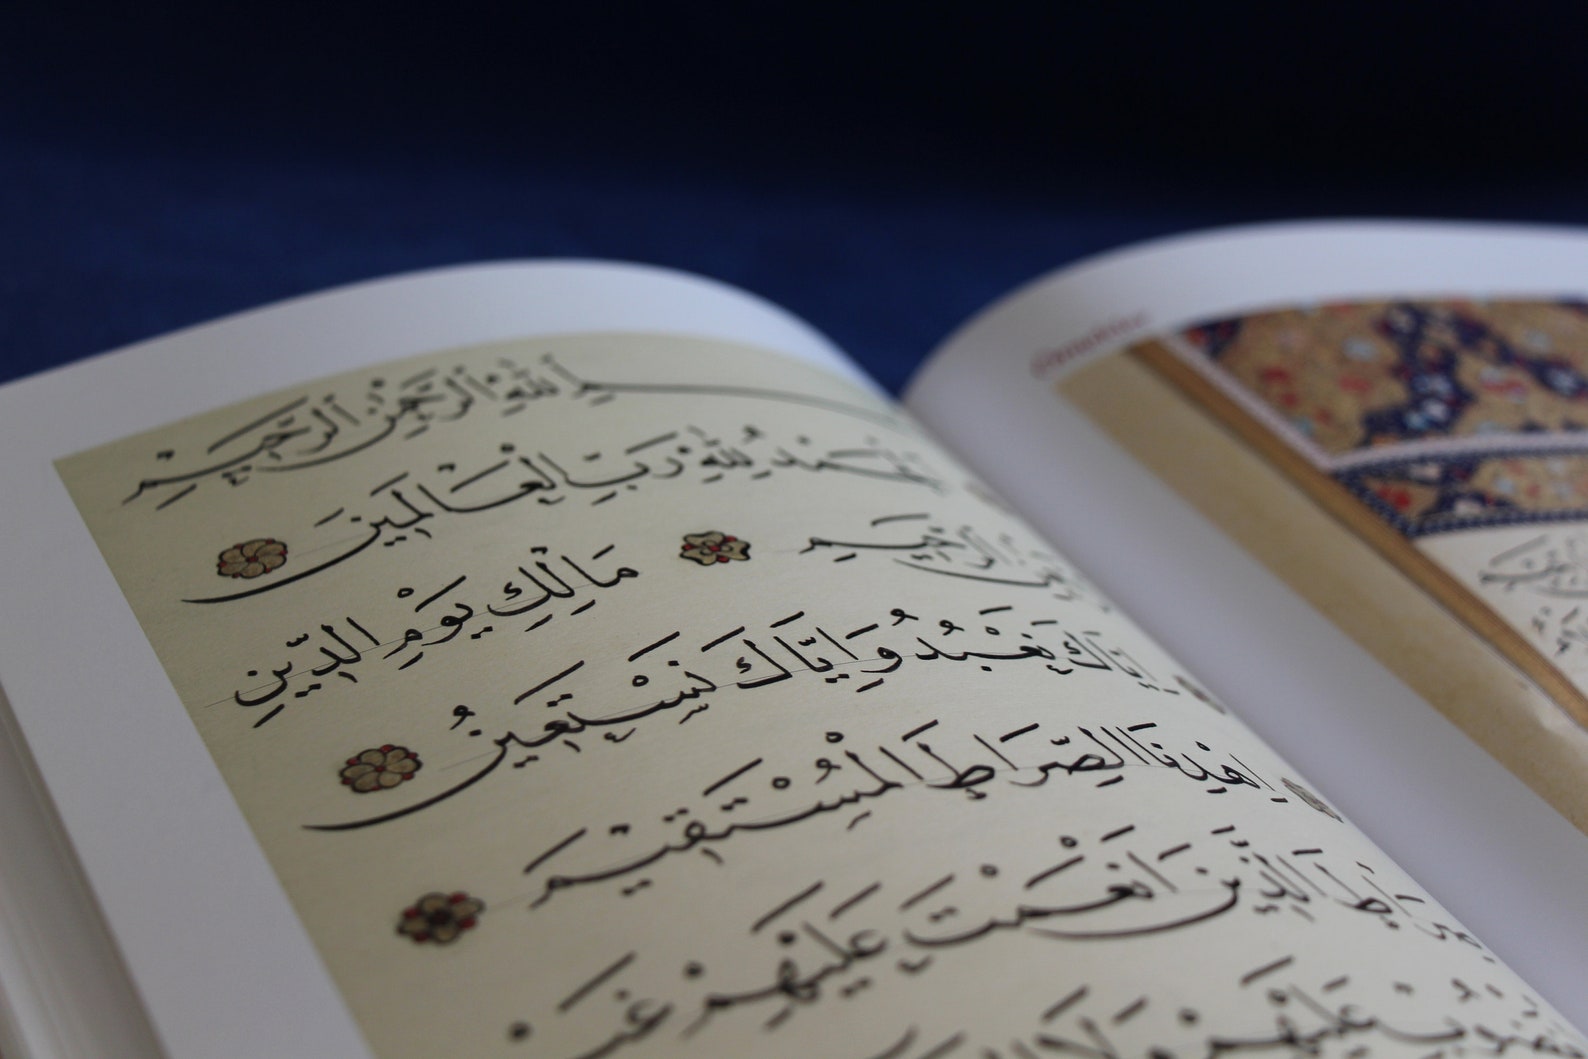 بِسْمِ ٱللّٰهِ ٱلرَّحْمٰنِ ٱلرَّحِيمِ
اَلْحَمْدُ لِلّٰهِ رَبِّ الْعَالَمِينَ
الرَّحِيمِ
مَالِكِ يَوْمِ الدِّينِ
اِيَّاكَ نَعْبُدُ وَاِيَّاكَ نَسْتَعِينُ
اِهْدِنَا الصِّرَاطَ الْمُسْتَقِيمَ
صِرَاطَ الَّذِينَ اَنْعَمْتَ عَلَيْهِمْ غَيْرِ
الْمَغْضُوبِ عَلَيْهِمْ وَلَا